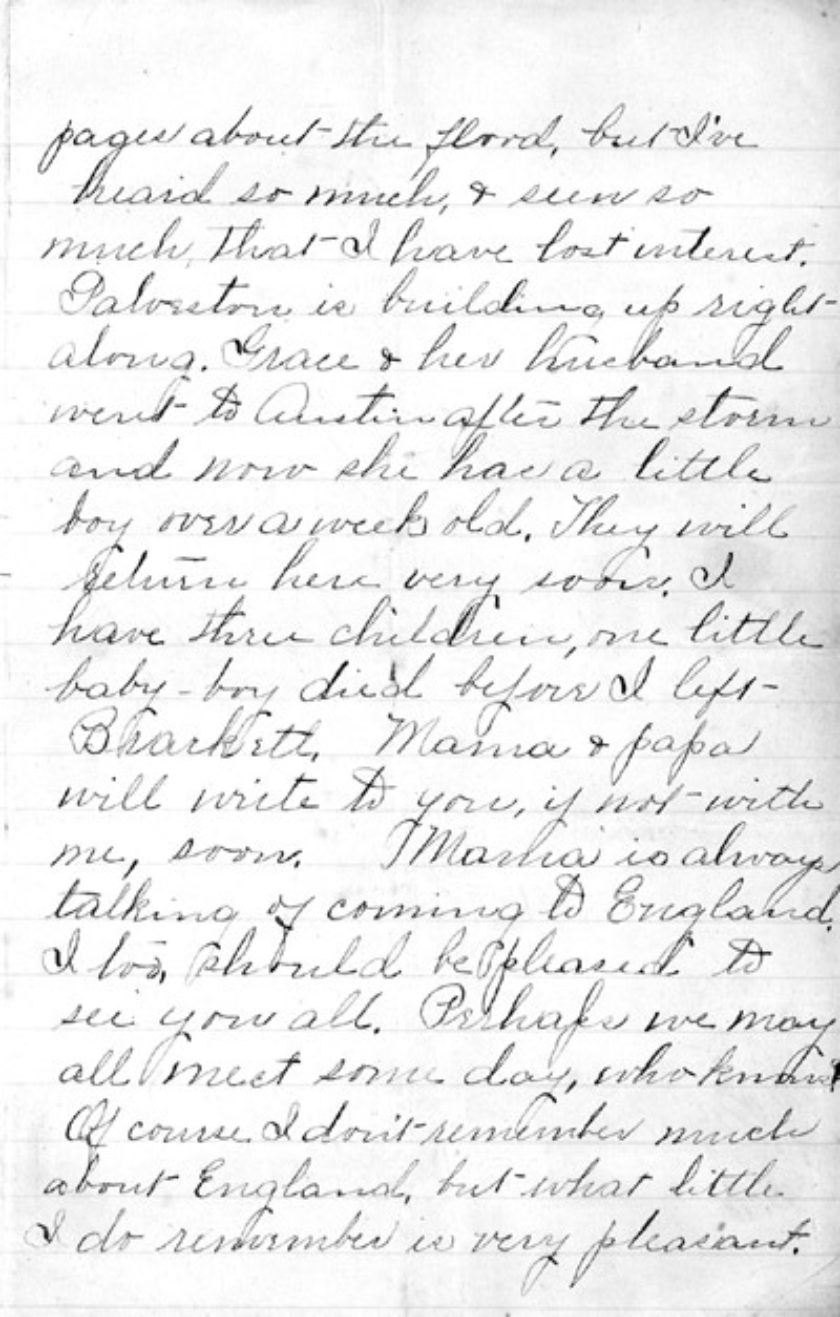 pages about the flood, but I've
heard so much, & seen so
much, that I have lost interest.
Galveston is building up right
along. Grace & her husband
went to Austin after the storm
and now she has a little
boy over a week old. They will
return here very soon. I
have three children, one little
baby-boy died before I left
Brackett. Mama & papa
will write to you, if not with
me, soon. Mama is always
talking of coming to England.
I too, should be pleased to
see you all. Perhaps we may
all meet some day, who knows
Of course I don't remember much
about England, but what little
I do remember is very pleasant.